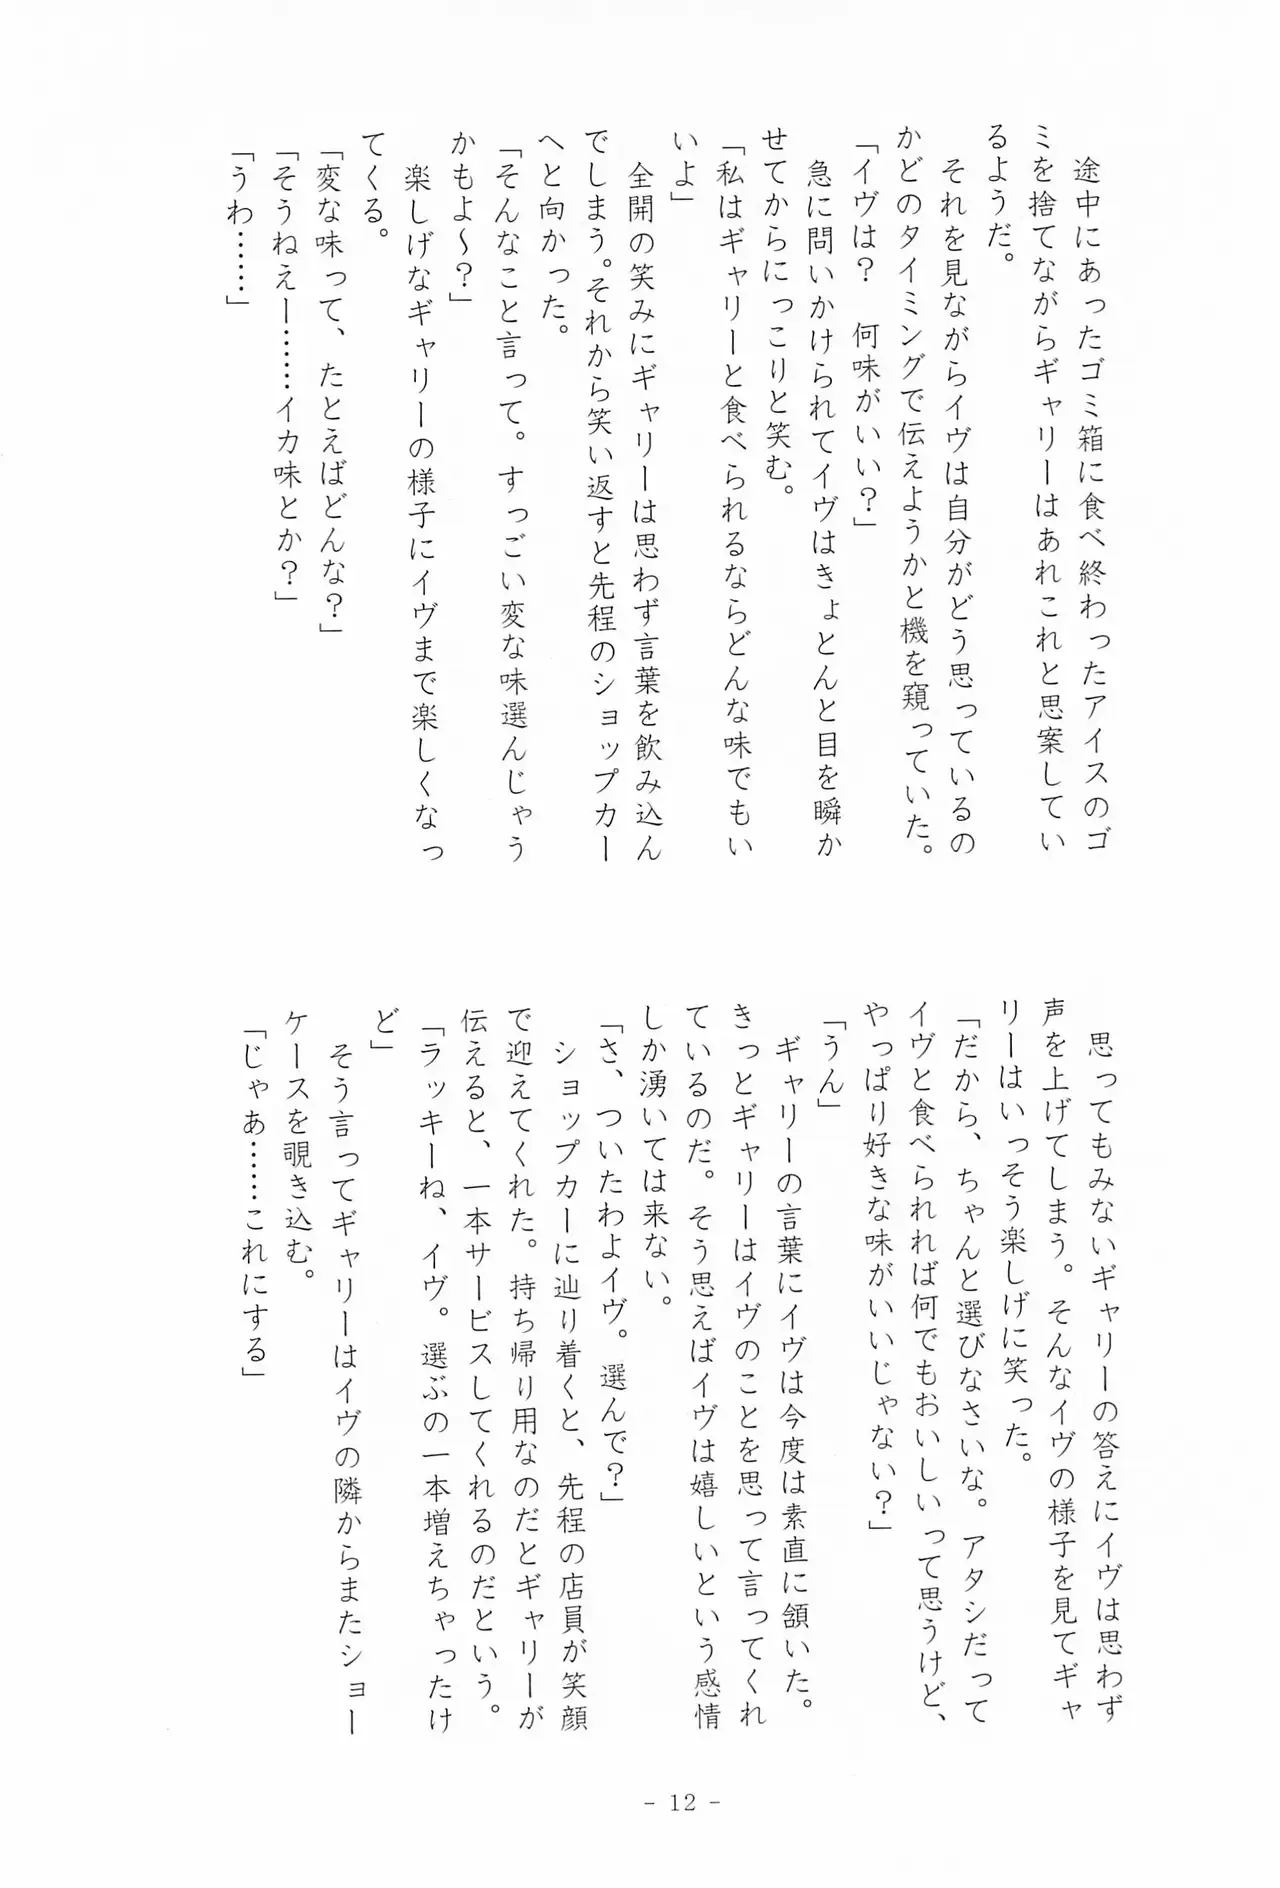 途中にあったゴミ箱に食べ終わったアイスのゴ
ミを捨てながらギャリーはあれこれと思案してい
るようだ。
　それを見ながらイヴは自分がどう思っているの
かどのタイミングで伝えようかと機を窺っていた。
「イヴは？　何味がいい？」
　急に問いかけられてイヴはきょとんと目を瞬か
せてからにっこりと笑む。
「私はギャリーと食べられるならどんな味でもい
いよ」
　全開の笑みにギャリーは思わず言葉を飲み込ん
でしまう。それから笑い返すと先程のショップカー
へと向かった。
「そんなこと言って。すっごい変な味選んじゃう
かもよ～？」
　楽しげなギャリーの様子にイヴまで楽しくなっ
てくる。
「変な味って、たとえばどんな？」
「そうねえー……イカ味とか？」
「うわ……」
　思ってもみないギャリーの答えにイヴは思わず
声を上げてしまう。そんなイヴの様子を見てギャ
リーはいっそう楽しげに笑った。
「だから、ちゃんと選びなさいな。アタシだって
イヴと食べられれば何でもおいしいって思うけど、
やっぱり好きな味がいいじゃない？」
「うん」
　ギャリーの言葉にイヴは今度は素直に頷いた。
きっとギャリーはイヴのことを思って言ってくれ
ているのだ。そう思えばイヴは嬉しいという感情
しか湧いては来ない。
「さ、ついたわよイヴ。選んで？」
　ショップカーに辿り着くと、先程の店員が笑顔
で迎えてくれた。持ち帰り用なのだとギャリーが
伝えると、一本サービスしてくれるのだという。
「ラッキーね、イヴ。選ぶの一本増えちゃったけ
ど」
　そう言ってギャリーはイヴの隣からまたショー
ケースを覗き込む。
「じゃあ……これにする」
- 12 -